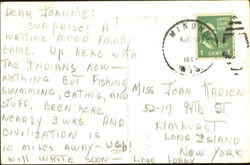 DEAR JOANNIE!
SURPRISE! A
WRITING MOOD FINALLY
CAME. UP HERE WITH
THE INDIANS NOW -
NOTHING BUT FISHING,
SWIMMING, EATING, AND
STUFF. BEEN HERE
NEARLY 3 WKS. AND
CIVILIZATION IS
10 MILES AWAY - UGH!
WILL WRITE SOON -
LOVE,
MINO
WIS.
1 CENT
MISS JOAN
52-17 94TH ST
ELMHURST
LONG ISLAND
NEW YORK